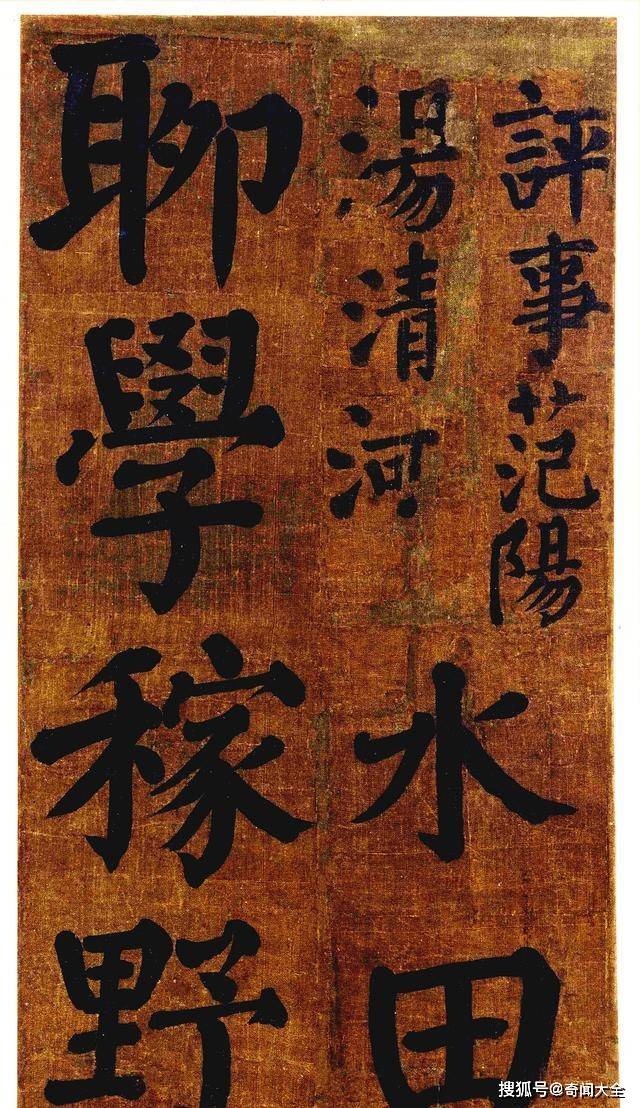 評事范陽
湯清河
水田
聊學稼野
搜狐号@奇闻大全